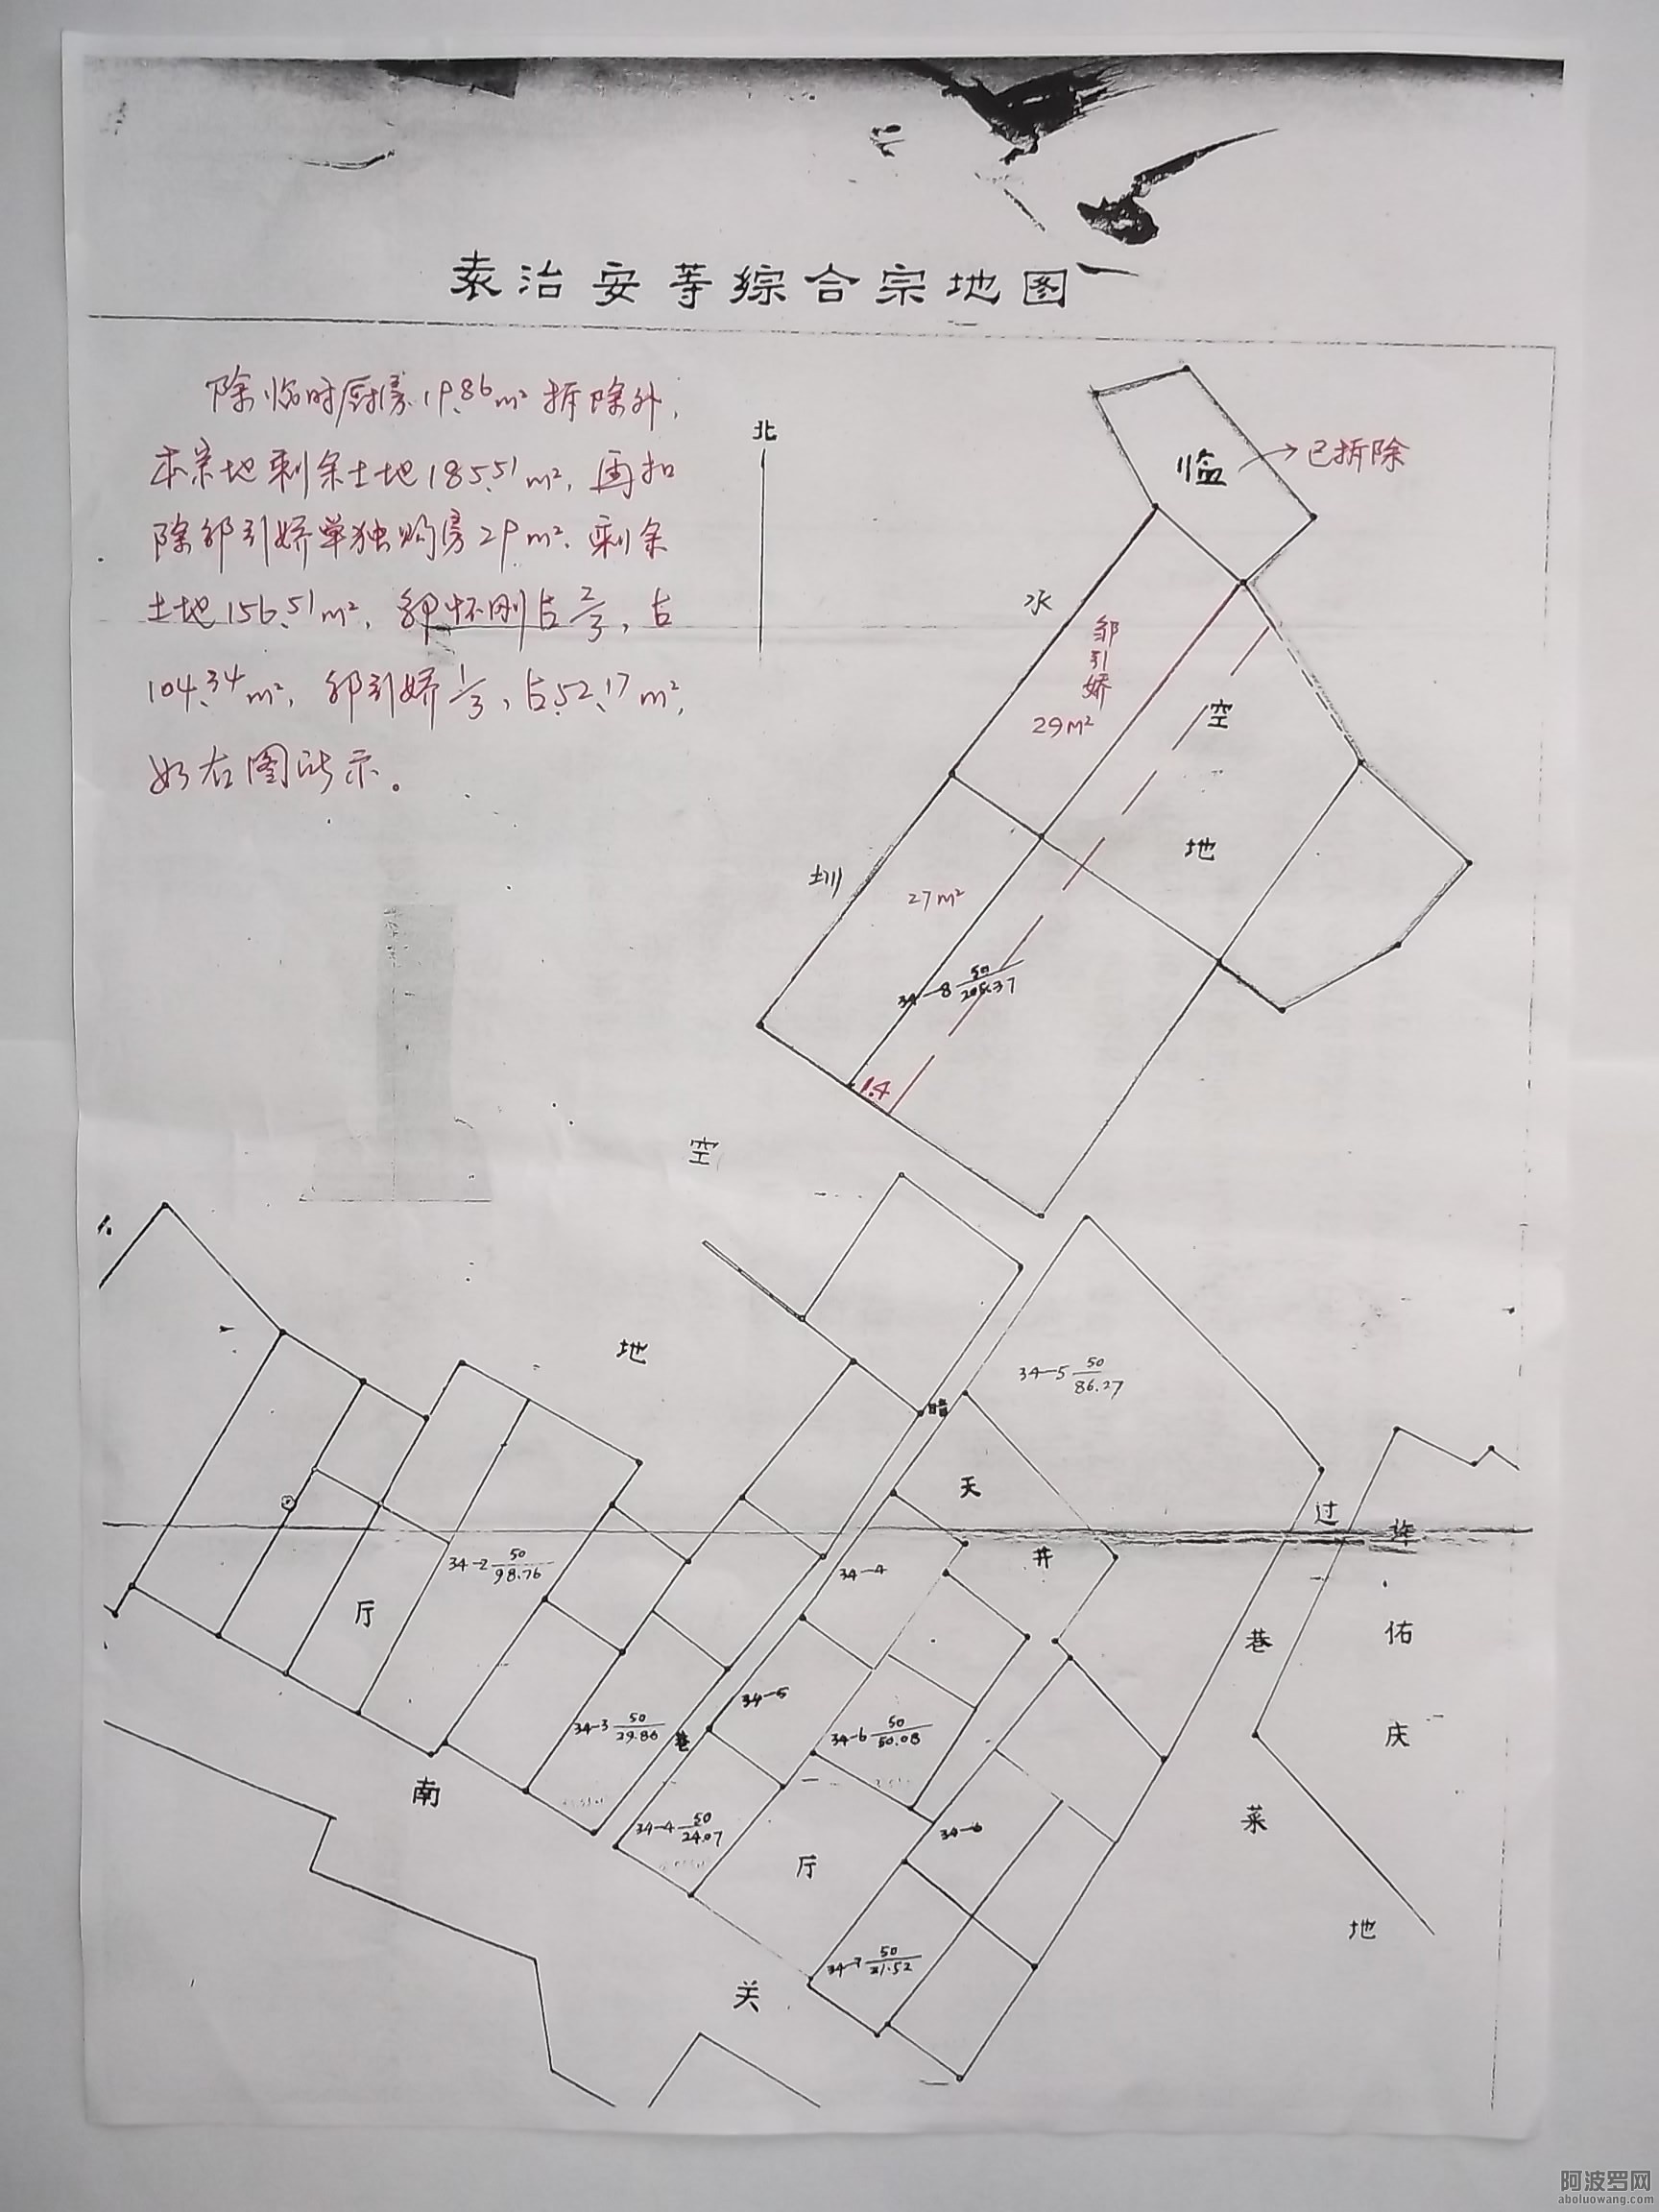 袁治安等综合宗地图
除临时厨房19.86m²拆除外,
本宗地剩余土地185.51m²,再扣
除邹引娇单独购房29m²,剩余
土地156.51m²,邹怀刚占2/3,占
104.34m²,邹引娇1/3,占52.17m²,
如右图所示。
北
临
已拆除
水
邹引娇
29m²
空
地
圳
27m²
34-8 50/205.37
1.4
空
地
34-5 50/86.27
暗
天
过
井
34-2 50/98.76
34-4
厅
巷
佑
34-5
34-3 50/29.86
巷
34-6 50/50.08
庆
南
34-4 50/24.07
34-6
菜
厅
地
34-7 50/21.52
关
阿波罗网
aboluowang.com